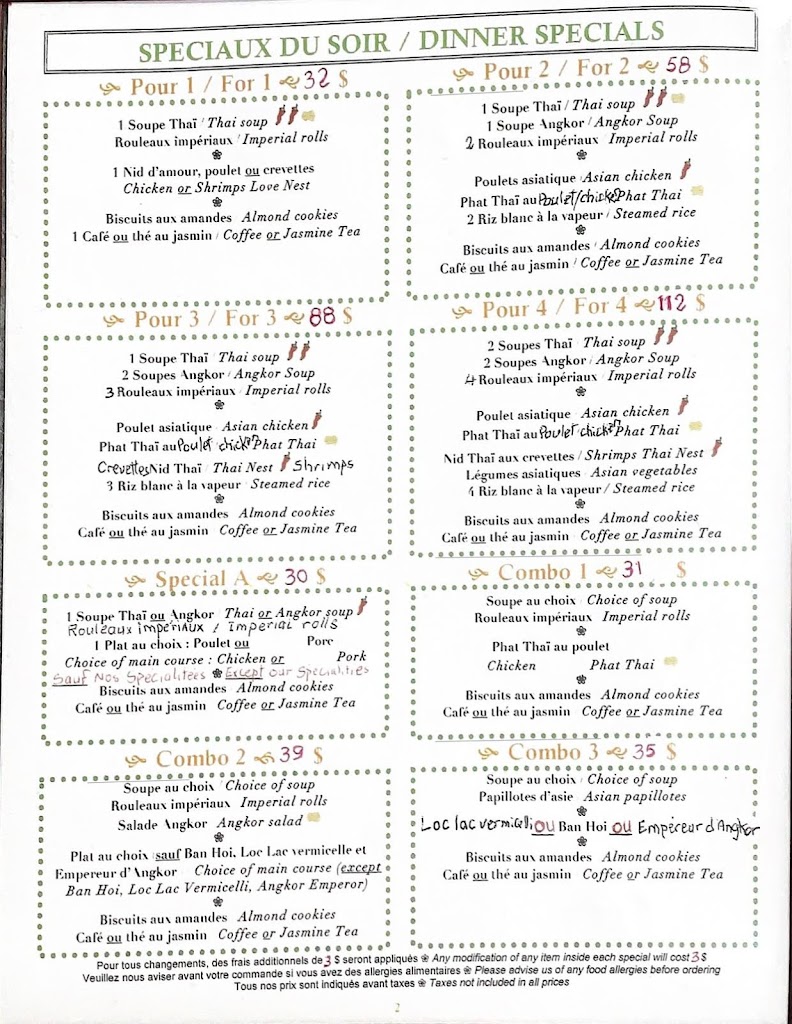 SPECIAUX DU SOIR / DINNER SPECIALS
Pour 1 / For 1 32 $
1 Soupe Thaï / Thai soup
Rouleaux impériaux / Imperial rolls
1 Nid d'amour, poulet ou crevettes
Chicken or Shrimps Love Nest
Biscuits aux amandes Almond cookies
1 Café ou thé au jasmin / Coffee or Jasmine Tea
Pour 2 / For 2 58 $
1 Soupe Thaï / Thai soup
1 Soupe Angkor / Angkor Soup
2 Rouleaux impériaux / Imperial rolls
Poulets asiatique / Asian chicken
Phat Thaï au Poulet/chicken Phat Thai
2 Riz blanc à la vapeur / Steamed rice
Biscuits aux amandes / Almond cookies
Café ou thé au jasmin / Coffee or Jasmine Tea
Pour 3 / For 3 88 $
1 Soupe Thaï / Thai soup
2 Soupes Angkor / Angkor Soup
3 Rouleaux impériaux / Imperial rolls
Poulet asiatique / Asian chicken
Phat Thaï au Poulet chicken Phat Thai
Crevettes Nid Thaï / Thai Nest Shrimps
3 Riz blanc à la vapeur / Steamed rice
Biscuits aux amandes Almond cookies
Café ou thé au jasmin Coffee or Jasmine Tea
Pour 4 / For 4 112 $
2 Soupes Thaï / Thai soup
2 Soupes Angkor / Angkor Soup
4 Rouleaux impériaux / Imperial rolls
Poulet asiatique / Asian chicken
Phat Thaï au Poulet chicken Phat Thai
Nid Thaï aux crevettes / Shrimps Thai Nest
Légumes asiatiques / Asian vegetables
4 Riz blanc à la vapeur / Steamed rice
Biscuits aux amandes Almond cookies
Café ou thé au jasmin Coffee or Jasmine Tea
Special A 30 $
1 Soupe Thaï ou Angkor / Thai or Angkor soup
Rouleaux impériaux / Imperial rolls
1 Plat au choix : Poulet ou Porc
Choice of main course : Chicken or Pork
Sauf Nos Specialitées Except our specialities
Biscuits aux amandes Almond cookies
Café ou thé au jasmin Coffee or Jasmine Tea
Combo 1 31 $
Soupe au choix / Choice of soup
Rouleaux impériaux Imperial rolls
Phat Thaï au poulet
Chicken Phat Thai
Biscuits aux amandes Almond cookies
Café ou thé au jasmin Coffee or Jasmine Tea
Combo 2 39 $
Soupe au choix / Choice of soup
Rouleaux impériaux Imperial rolls
Salade Angkor Angkor salad
Plat au choix sauf Ban Hoi, Loc Lac vermicelle et
Empereur d'Angkor Choice of main course (except
Ban Hoi, Loc Lac Vermicelli, Angkor Emperor)
Biscuits aux amandes Almond cookies
Café ou thé au jasmin Coffee or Jasmine Tea
Combo 3 35 $
Soupe au choix / Choice of soup
Papillotes d'asie / Asian papillotes
Loc lac vermicelli ou Ban Hoi ou Empereur d'Angkor
Biscuits aux amandes Almond cookies
Café ou thé au jasmin / Coffee or Jasmine Tea
Pour tous changements, des frais additionnels de 3 $ seront appliqués Any modification of any item inside each special will cost 3 $
Veuillez nous aviser avant votre commande si vous avez des allergies alimentaires Please advise us of any food allergies before ordering
Tous nos prix sont indiqués avant taxes Taxes not included in all prices
2